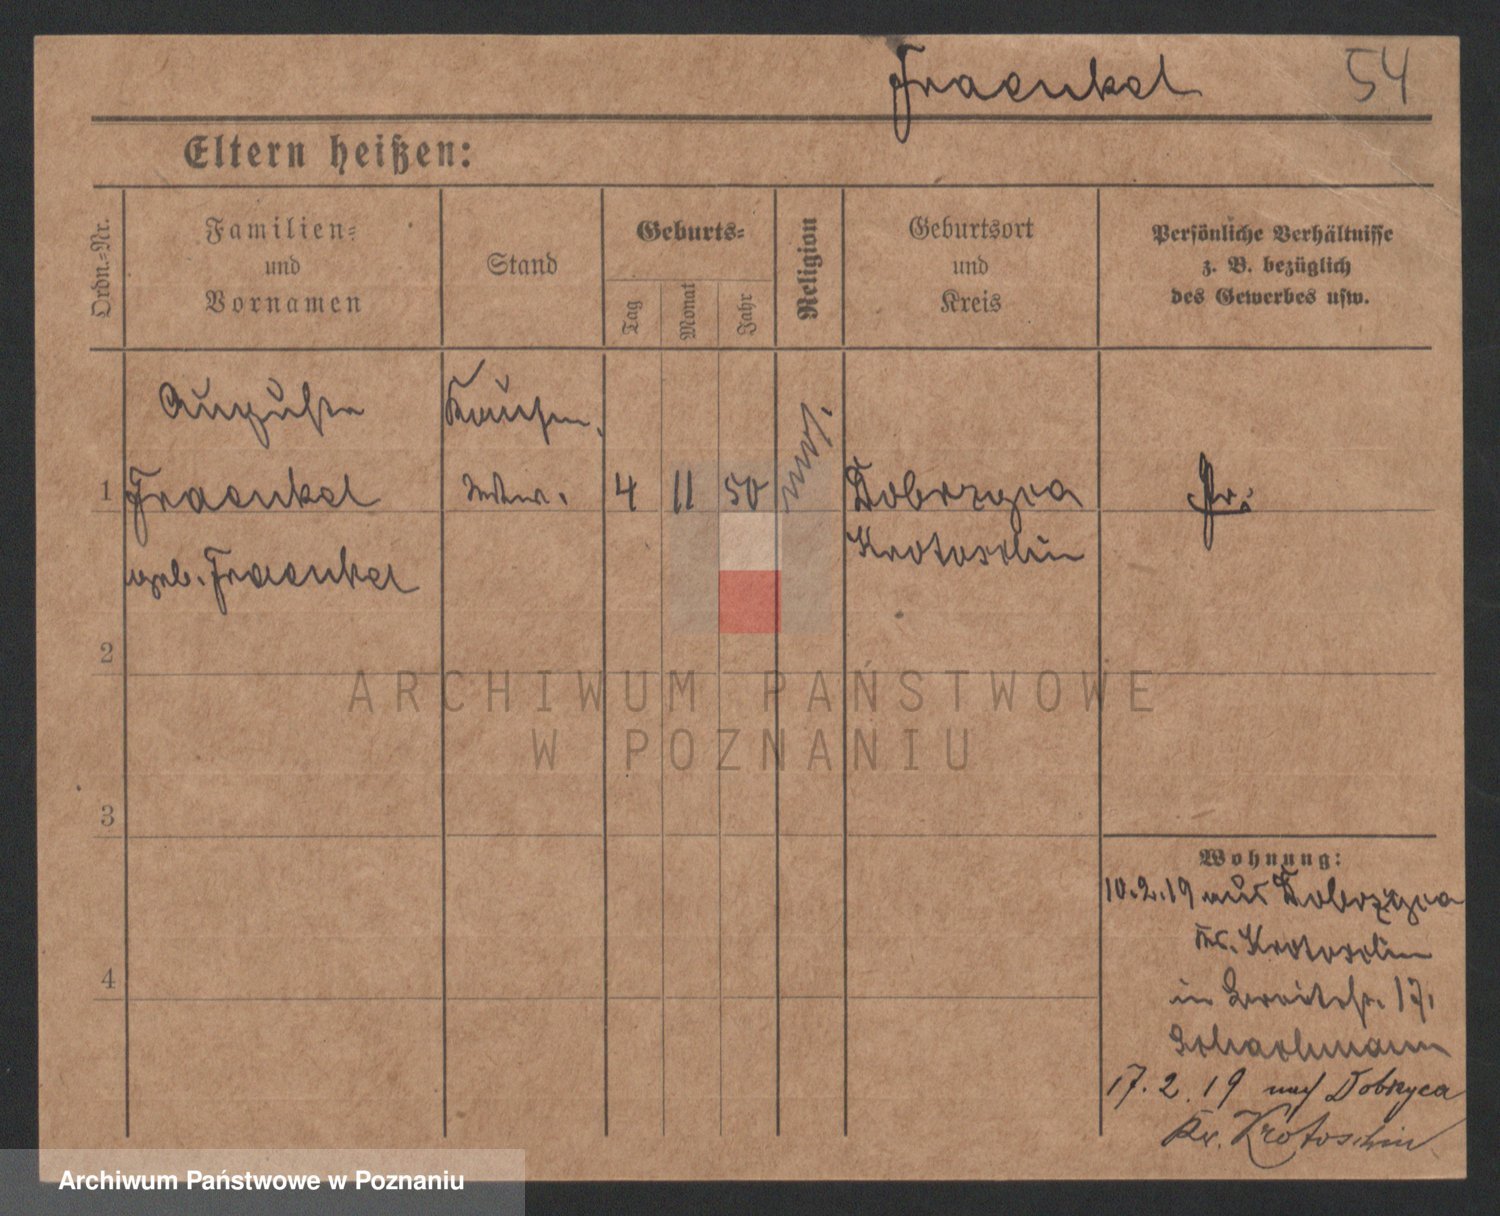 Fraenkel 54
Eltern heißen:
Ordn.-Nr.
Familien-
und
Vornamen
Stand
Geburts-
Tag
Monat
Jahr
Religion
Geburtsort
und
Kreis
Persönliche Verhältnisse
z. B. bezüglich
des Gewerbes usw.
Auguste Kaufm.
1 Fraenkel Wtw. 4 11 50 mos. Dobrzyca Pr.
geb. Fraenkel Krotoschin
2
ARCHIWUM PAŃSTWOWE
W POZNANIU
3
4
Wohnung:
10.2.19 aus Dobrzyca
Kr. Krotoschin
in Breitestr. 17.
Schachmann
17.2.19 nach Dobrzyca
Kr. Krotoschin
Archiwum Państwowe w Poznaniu